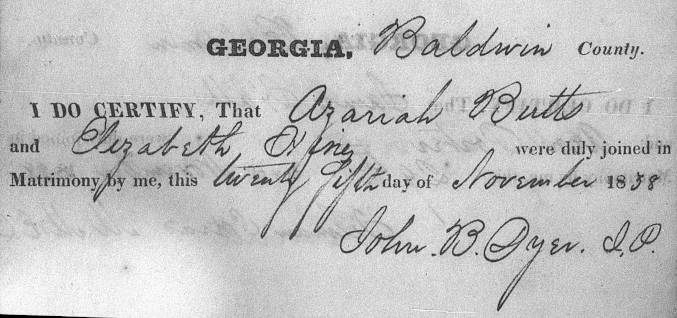 GEORGIA, Baldwin County.
I DO CERTIFY, That Azariah Butts
and Elizabeth were duly joined in
Matrimony by me, this twenty fifth day of November 1838
John. B. Dyer. J. P.